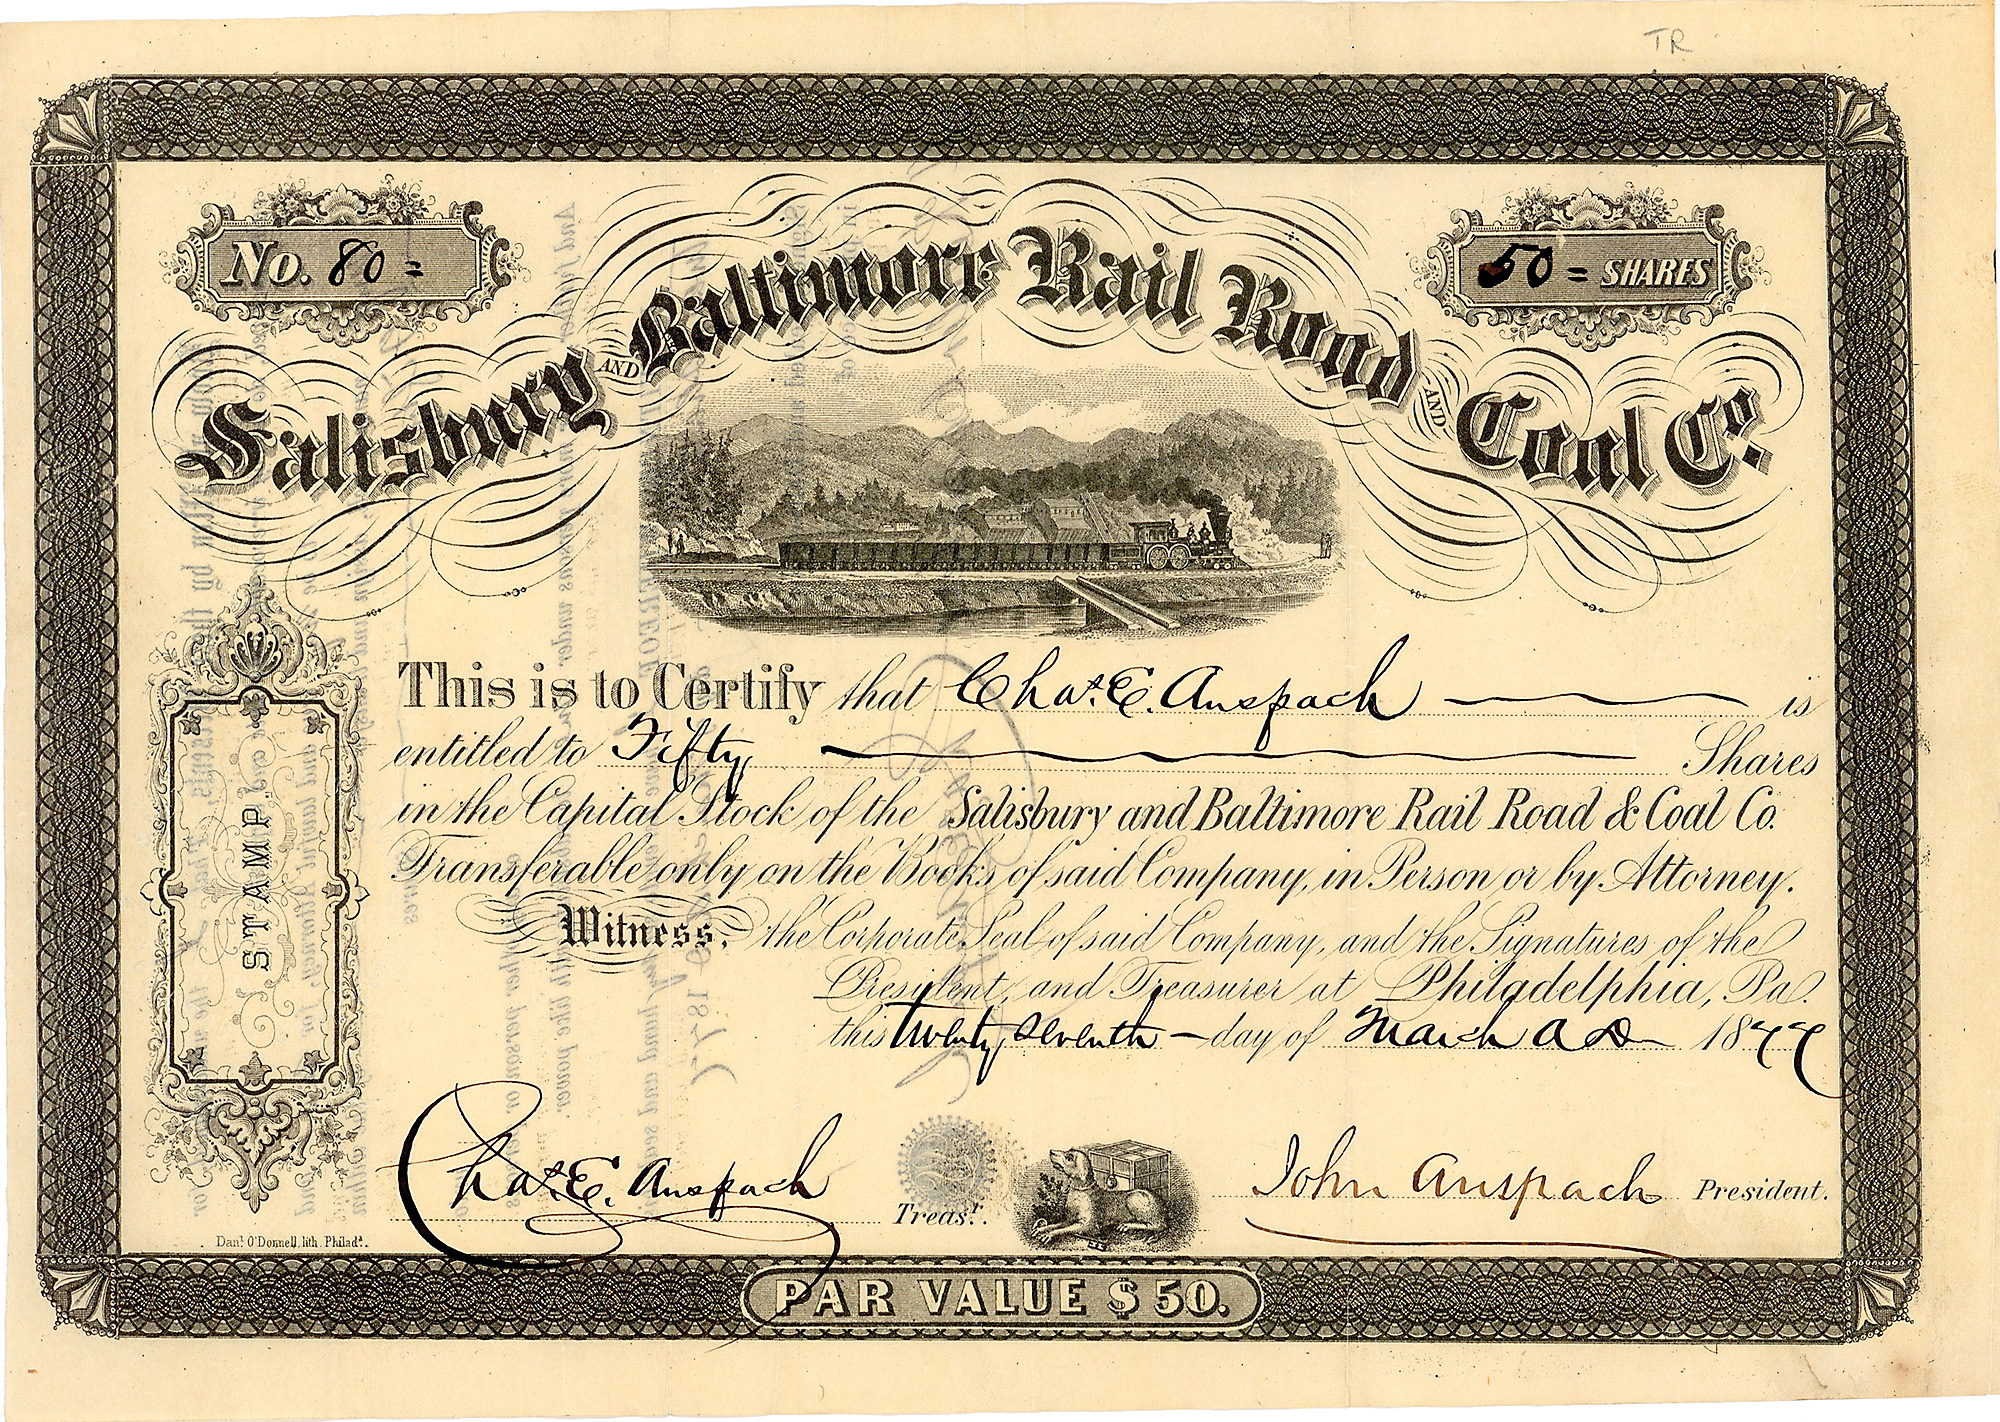 TR
No. 80 =
50 = SHARES
Salisbury AND Baltimore Rail Road AND Coal Co.
This is to Certify that Chas. E. Anspach is
entitled to Fifty Shares
in the Capital Stock of the Salisbury and Baltimore Rail Road & Coal Co.
Transferable only on the Books of said Company, in Person or by Attorney.
Witness, the Corporate Seal of said Company, and the Signatures of the
President, and Treasurer at Philadelphia, Pa.
this twenty seventh day of March A D 1877
STAMP
Chas. E. Anspach Treasr.
John Anspach President.
Danl. O'Donnell, lith. Philada.
PAR VALUE $50.